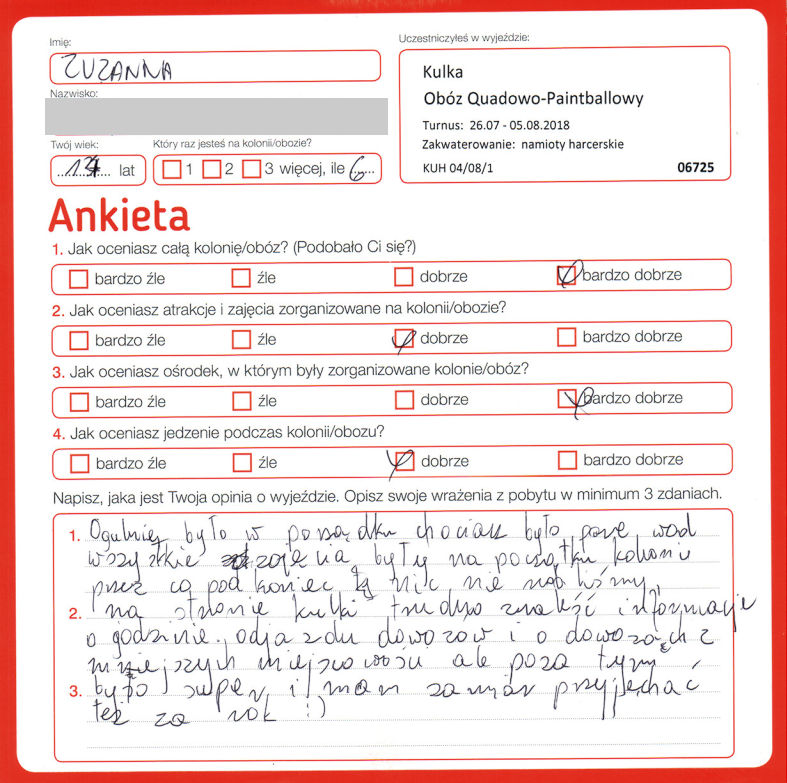 Imię:
ZUZANNA
Nazwisko:
Twój wiek:
lat
Który raz jesteś na kolonii/obozie?
1 2 3 więcej, ile 6
Uczestniczyłeś w wyjeździe:
Kulka
Obóz Quadowo-Paintballowy
Turnus: 26.07 - 05.08.2018
Zakwaterowanie: namioty harcerskie
KUH 04/08/1 06725
Ankieta
1. Jak oceniasz całą kolonię/obóz? (Podobało Ci się?)
bardzo źle źle dobrze bardzo dobrze
2. Jak oceniasz atrakcje i zajęcia zorganizowane na kolonii/obozie?
bardzo źle źle dobrze bardzo dobrze
3. Jak oceniasz ośrodek, w którym były zorganizowane kolonie/obóz?
bardzo źle źle dobrze bardzo dobrze
4. Jak oceniasz jedzenie podczas kolonii/obozu?
bardzo źle źle dobrze bardzo dobrze
Napisz, jaka jest Twoja opinia o wyjeździe. Opisz swoje wrażenia z pobytu w minimum 3 zdaniach.
1. Ogulnie było w porządku chociarz było parę wad
wszystkie zajęcia były na początku koloni
przez co pod koniec nic nie robiliśmy.
2. na stronie kulki trudno znaleźć informacje
o godzinie odjazdu dowozów i o dowozach z
mniejszych miejscowości ale poza tym
3. było super i mam zamiar przyjechać
też za rok :)